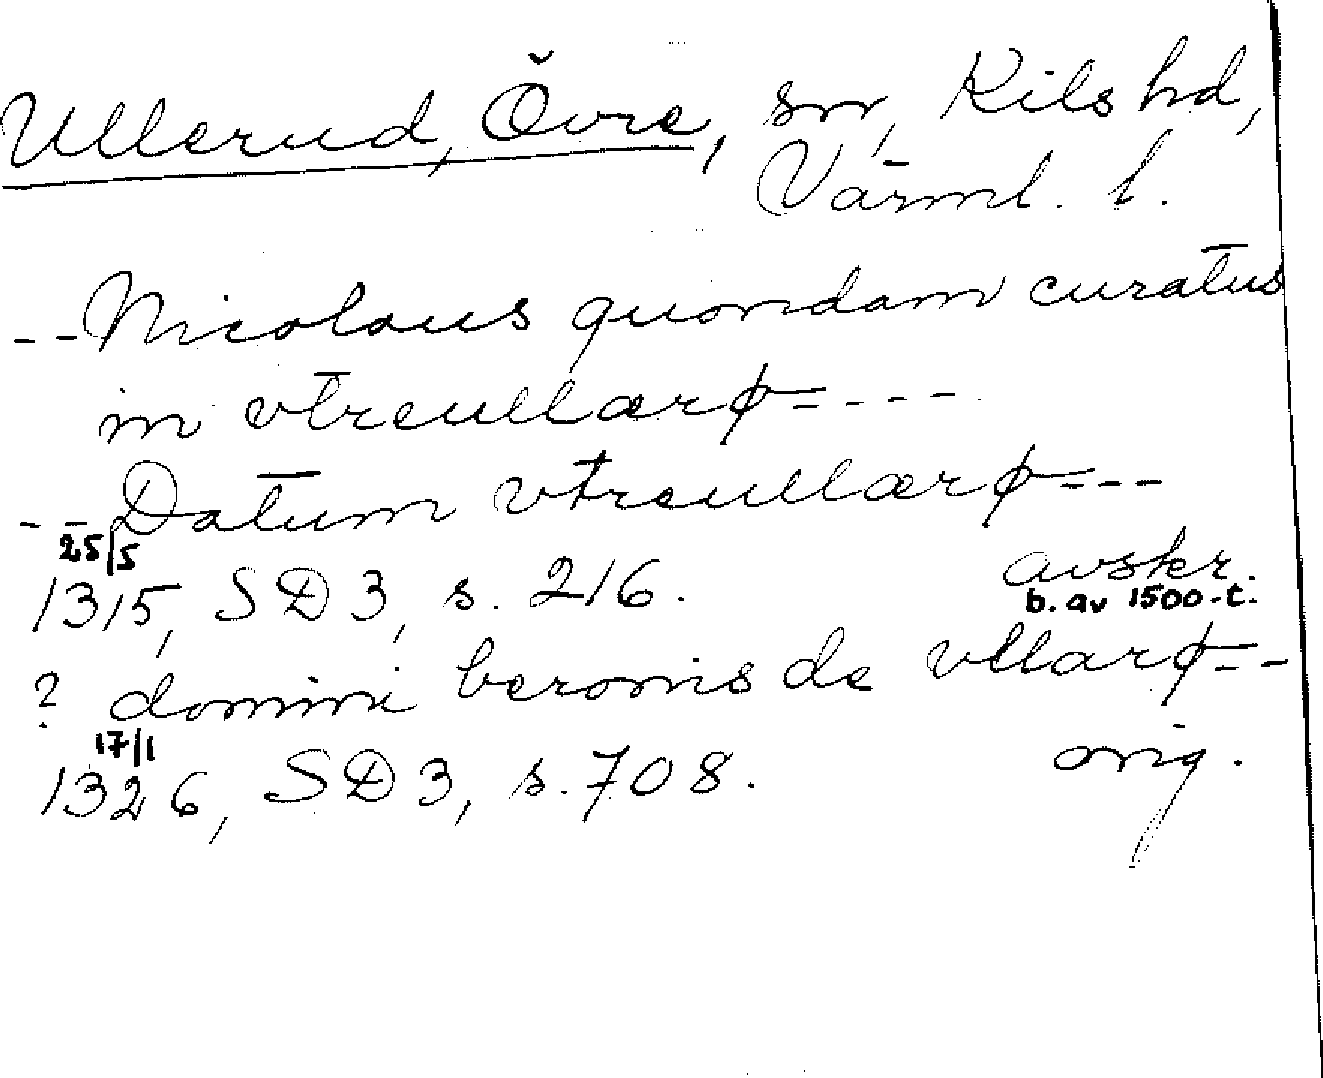 Ullerud, Övre, sn, Kils hd,
Värml. l.
--Nicolaus quondam curatus
in vtreullærø=---
--Datum vtreullærø=---
25/5
1315, SD 3, s. 216. avskr.
b. av 1500-t.
? domini beronis de vllarø=--
17/1 orig.
1326, SD 3, s. 708.